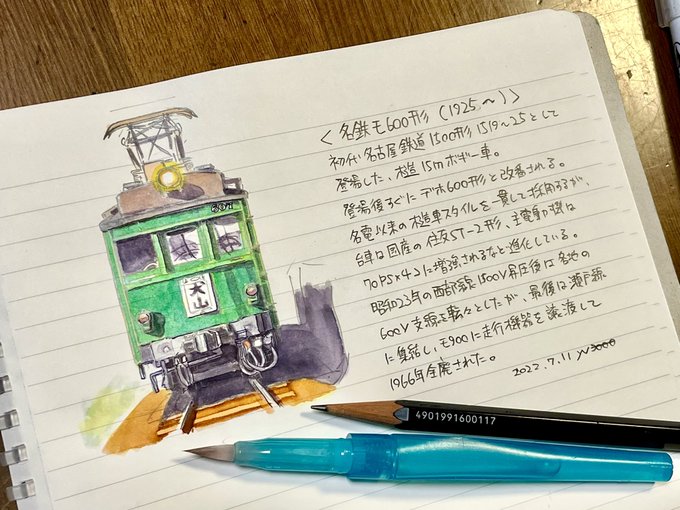 <名鉄モ600形 (1925〜)>
初代名古屋鉄道1500形1519〜25として
登場した、木造15mボギー車。
登場後すぐにデホ600形と改番される。
名電以来の木造車スタイルを一貫して採用するが、
台車は国産の住友ST-2形、主電動機は
70PS×4コに増強されるなど進化している。
昭和23年の西部線1500V昇圧後は各地の
600V支線を転々としたが、最後は瀬戸線
に集結し、モ900に走行機器を譲渡して
1966年全廃された。
2022.7.11
犬山
4901991600117